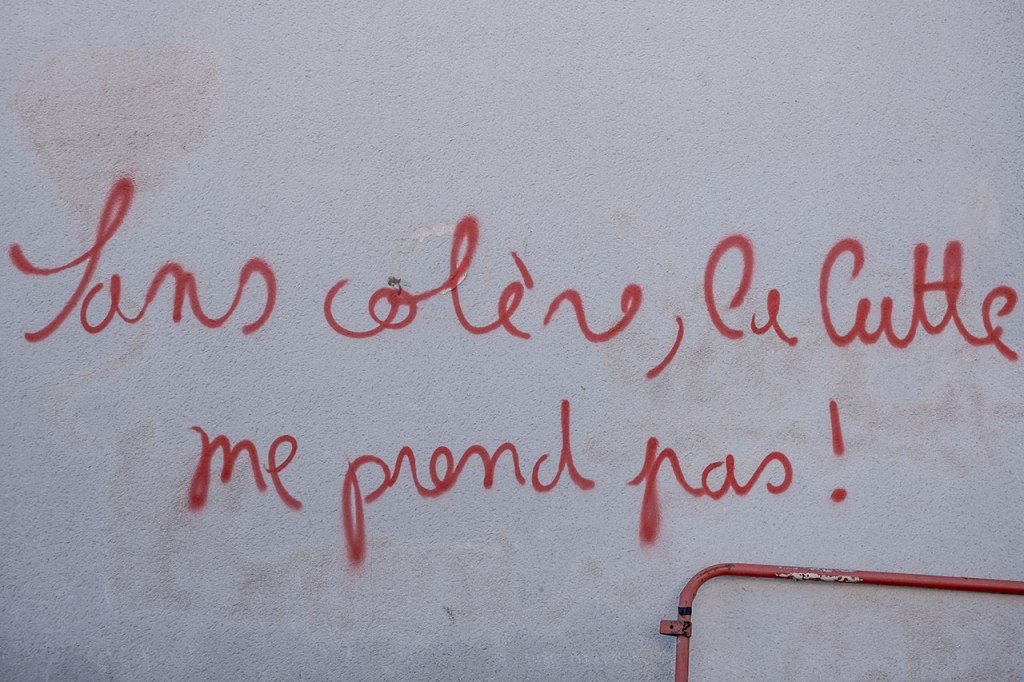 Sans colère, la lutte
me prend pas !